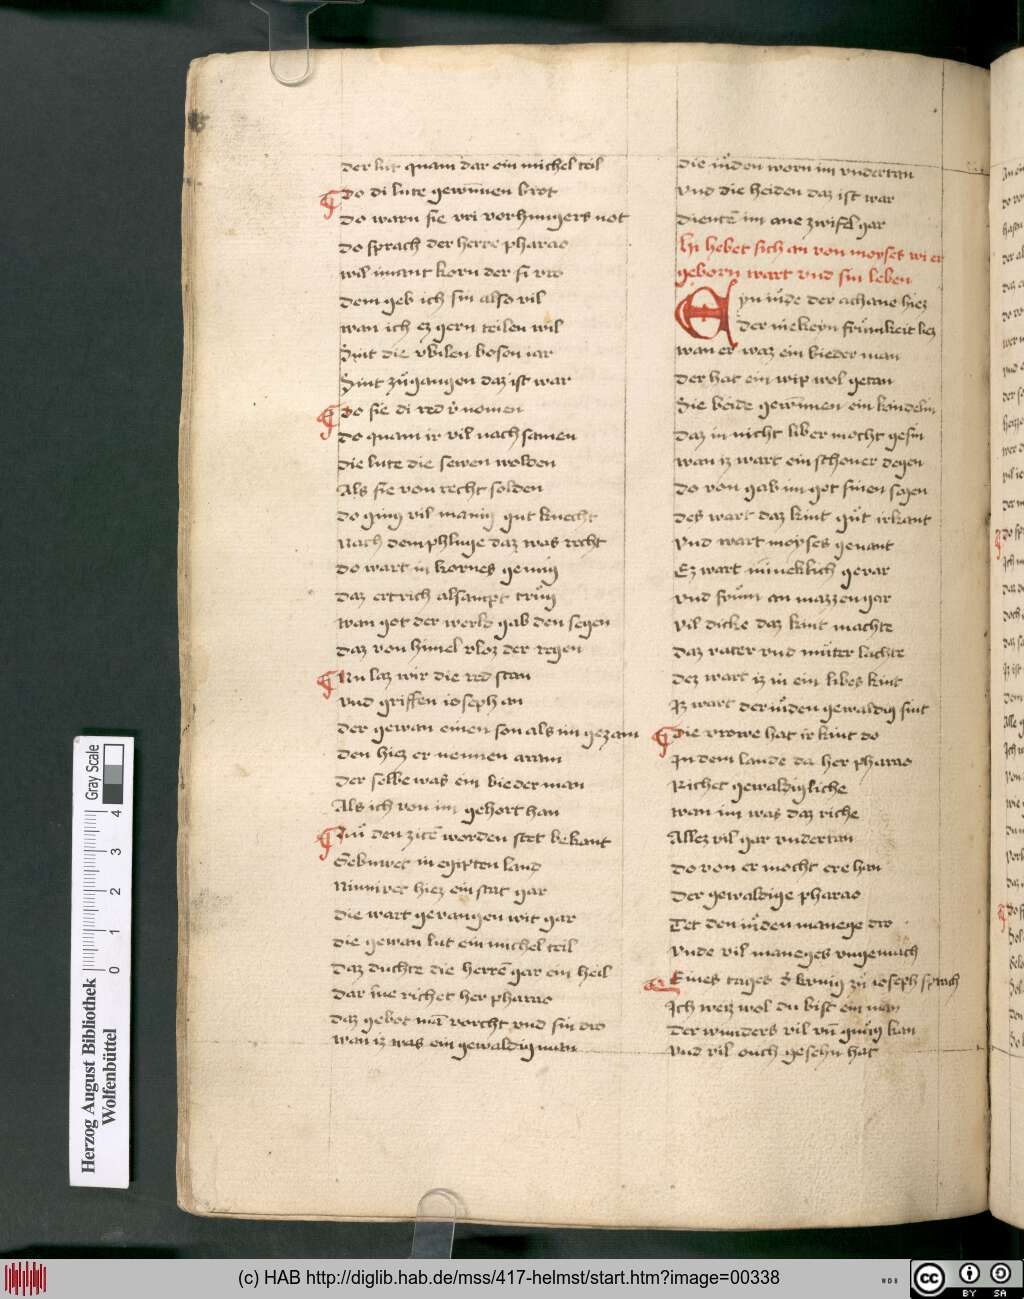 der lut quam dar ein michel teil
Do di lute gewu̅nen brot
do warn sie vri vorhungers not
do sprach der herre pharao
wil imant korn der si vro
dem geb ich sin also vil
wan ich ez gern teilen wil
Sint die vbilen bosen iar
Sint zůgangen daz ist war
Do sie di red v̓nomen
do quam ir vil nach samen
die lute die sewen wolden
Als sie von recht solden
do ging vil manig gut knecht
Nach dem phluge daz was recht
do wart in kornes genug
daz ertrich alsampt trůg
wan got der werlt gab den segen
daz von himel vloz der regen
Nu laz wir die red stan
vnd griffen ioseph an
der gewan einen son als im gezam
den hiez er nennen aram
der selbe was ein bieder man
Als ich von im gehort han
den zite̅ worden stet bekant
Gebuwet in egipten land
Niniver hiez ein stat gar
die wart gevangen wit gar
die gewan lut ein michel teil
daz duchte die herre̅ gar ein heil
dar i̅ne richet her pharao
daz gebot vorcht vnd sin dro
wan iz was ein gewaldig man
die iůden worn im vndertan
vnd die heiden daz ist war
diente̅ im ane zwifel gar
Hi hebet sich an von moyses wi er
geborn wart vnd sin leben
Eyn iůde der achane hiez
der niekeyn frůmkeit liez
wan er waz ein bieder man
der hat ein wip wol getan
Sie beide gewu̅nen ein kindelin
daz in nicht liber mocht gesin
wan iz wart ein schoner degen
do von gab im got sinen segen
des wart daz kint gůt irkant
vnd wart moyses genant
Ez wart mi̅neklich gevar
vnd frům an mazzen gar
vil dicke daz kint machte
daz vater vnd můter lachte
dez wart iz in ein libes kint
Iz wart der iůden gewaldig sint
Die vrowe hat ir kint do
In dem lande da her pharao
Richet gewaldigliche
wan im was daz riche
Allez vil gar vndertan
do von er mocht ere han
der gewaldige pharao
Tet den iůden manege dro
vnde vil maneges vngemach
Eines tages d̓ kunig zů ioseph sprach
Ich weiz wol du bist ein man
der wunders vil vn̅ kan
vnd vil ouch gesehn hat
Herzog August Bibliothek
Wolfenbüttel
0 1 2 3 4
Gray Scale
(c) HAB http://diglib.hab.de/mss/417-helmst/start.htm?image=00338
WDB
cc BY SA